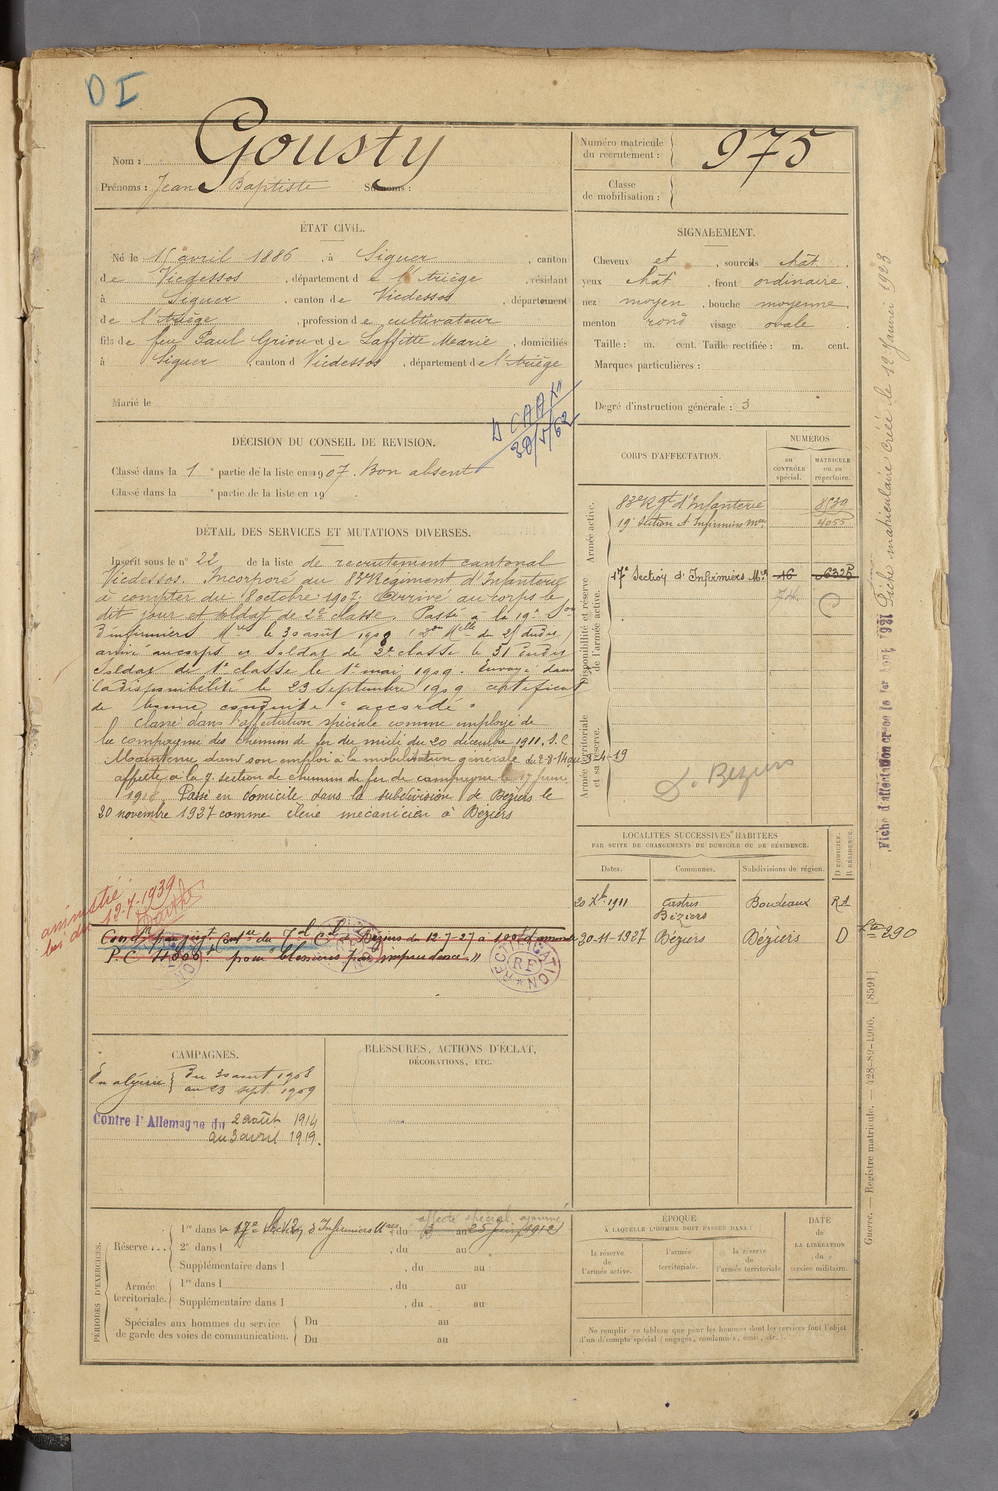 D I
Nom : Gousty
Prénoms : Jean Baptiste Surnoms :
Numéro matricule du recrutement : 975
Classe de mobilisation :
ÉTAT CIVIL.
Né le 15 avril 1886, à Siguer, canton
de Vicdessos, département de l'Ariège, résidant
à Siguer, canton de Vicdessos, département
de l'Ariège, profession de cultivateur
fils de feu Paul Griou et de Laffitte Marie, domiciliés
à Siguer, canton d Vicdessos, département de l'Ariège
Marié le
SIGNALEMENT.
Cheveux et, sourcils chât.
yeux chât, front ordinaire,
nez moyen, bouche moyenne
menton rond visage ovale
Taille : m. cent. Taille rectifiée : m. cent.
Marques particulières :
Degré d'instruction générale : 3
DÉCISION DU CONSEIL DE REVISION.
Classé dans la 1e partie de la liste en 1907. Bon absent
Classé dans la e partie de la liste en 19
30/5/62
DÉTAIL DES SERVICES ET MUTATIONS DIVERSES.
Inscrit sous le n° 22 de la liste de recrutement cantonal
Vicdessos. Incorporé au 83e Régiment d'Infanterie
à compter du 8 octobre 1907. Arrivé au corps le
dit jour et soldat de 2e classe. Passé à la 19e Son
d'infirmiers Mres le 30 août 1908 (Don Melle du 25 dudit)
arrivé au corps et soldat de 2e classe le 31 dudit
Soldat de 1e classe le 1er mai 1909. Envoyé dans
la disponibilité le 23 septembre 1909 certificat
de bonne conduite "accordé"
Classé dans l'affectation spéciale comme employé de
la compagnie des chemins de fer du midi du 20 décembre 1911. S.C
Maintenu dans son emploi à la mobilisation générale du 2-8-14 au 3-4-19
affecté à la 7e section de chemins de fer de campagne le 17 juin
Passé en domicile dans la subdivision de Béziers le
20 novembre 1927 comme élève mécanicien à Béziers
amnistié
loi du 13-7-1939
Condé par jugt Contre du Tal Cel de Béziers du 12-7-27 à 100f d'amende
P.C. pour "blessures par imprudence"
CORPS D'AFFECTATION.
NUMÉROS
au CONTRÔLE spécial.
MATRICULE ou au répertoire.
Armée active.
83e Rgt d'Infanterie 8539
19e Section d'Infirmiers Mres 4055
Disponibilité et réserve de l'armée active.
17e Section d'Infirmiers Mres 16
Armée territoriale et sa réserve.
S. Béziers
LOCALITÉS SUCCESSIVES HABITÉES
PAR SUITE DE CHANGEMENTS DE DOMICILE OU DE RÉSIDENCE.
Dates. Communes. Subdivisions de région. D DOMICILE. R RÉSIDENCE.
20 Xbre 1911 Castres Béziers Bordeaux
20-11-1927 Béziers Béziers D
290
Fiche matriculaire créée le 12 Janvier 1923
Fiche d'affectation créée le 1er
Guerre. — Registre matricule. — 428-89-1906. [8591]
CAMPAGNES.
En algérie du 30 août 1908
au 23 sept. 1909
Contre l'Allemagne du 2 août 1914
au 3 avril 1919.
BLESSURES, ACTIONS D'ÉCLAT,
DÉCORATIONS, ETC.
PÉRIODES D'EXERCICES.
affecté spécial, ajourné
Réserve... 1re dans la 17e Section d'Infirmiers Mres, du 3 au 25 juin (1912)
2e dans l , du au
Supplémentaire dans l , du au
Armée territoriale. 1re dans l , du au
Supplémentaire dans l , du au
Spéciales aux hommes du service de garde des voies de communication. Du au
Du au
ÉPOQUE
À LAQUELLE L'HOMME DOIT PASSER DANS :
la réserve de l'armée active.
l'armée territoriale.
la réserve de l'armée territoriale
DATE de LA LIBÉRATION du service militaire.
Ne remplir ce tableau que pour les hommes dont les services font l'objet
d'un décompte spécial (engagés, condamnés, omis, etc.)